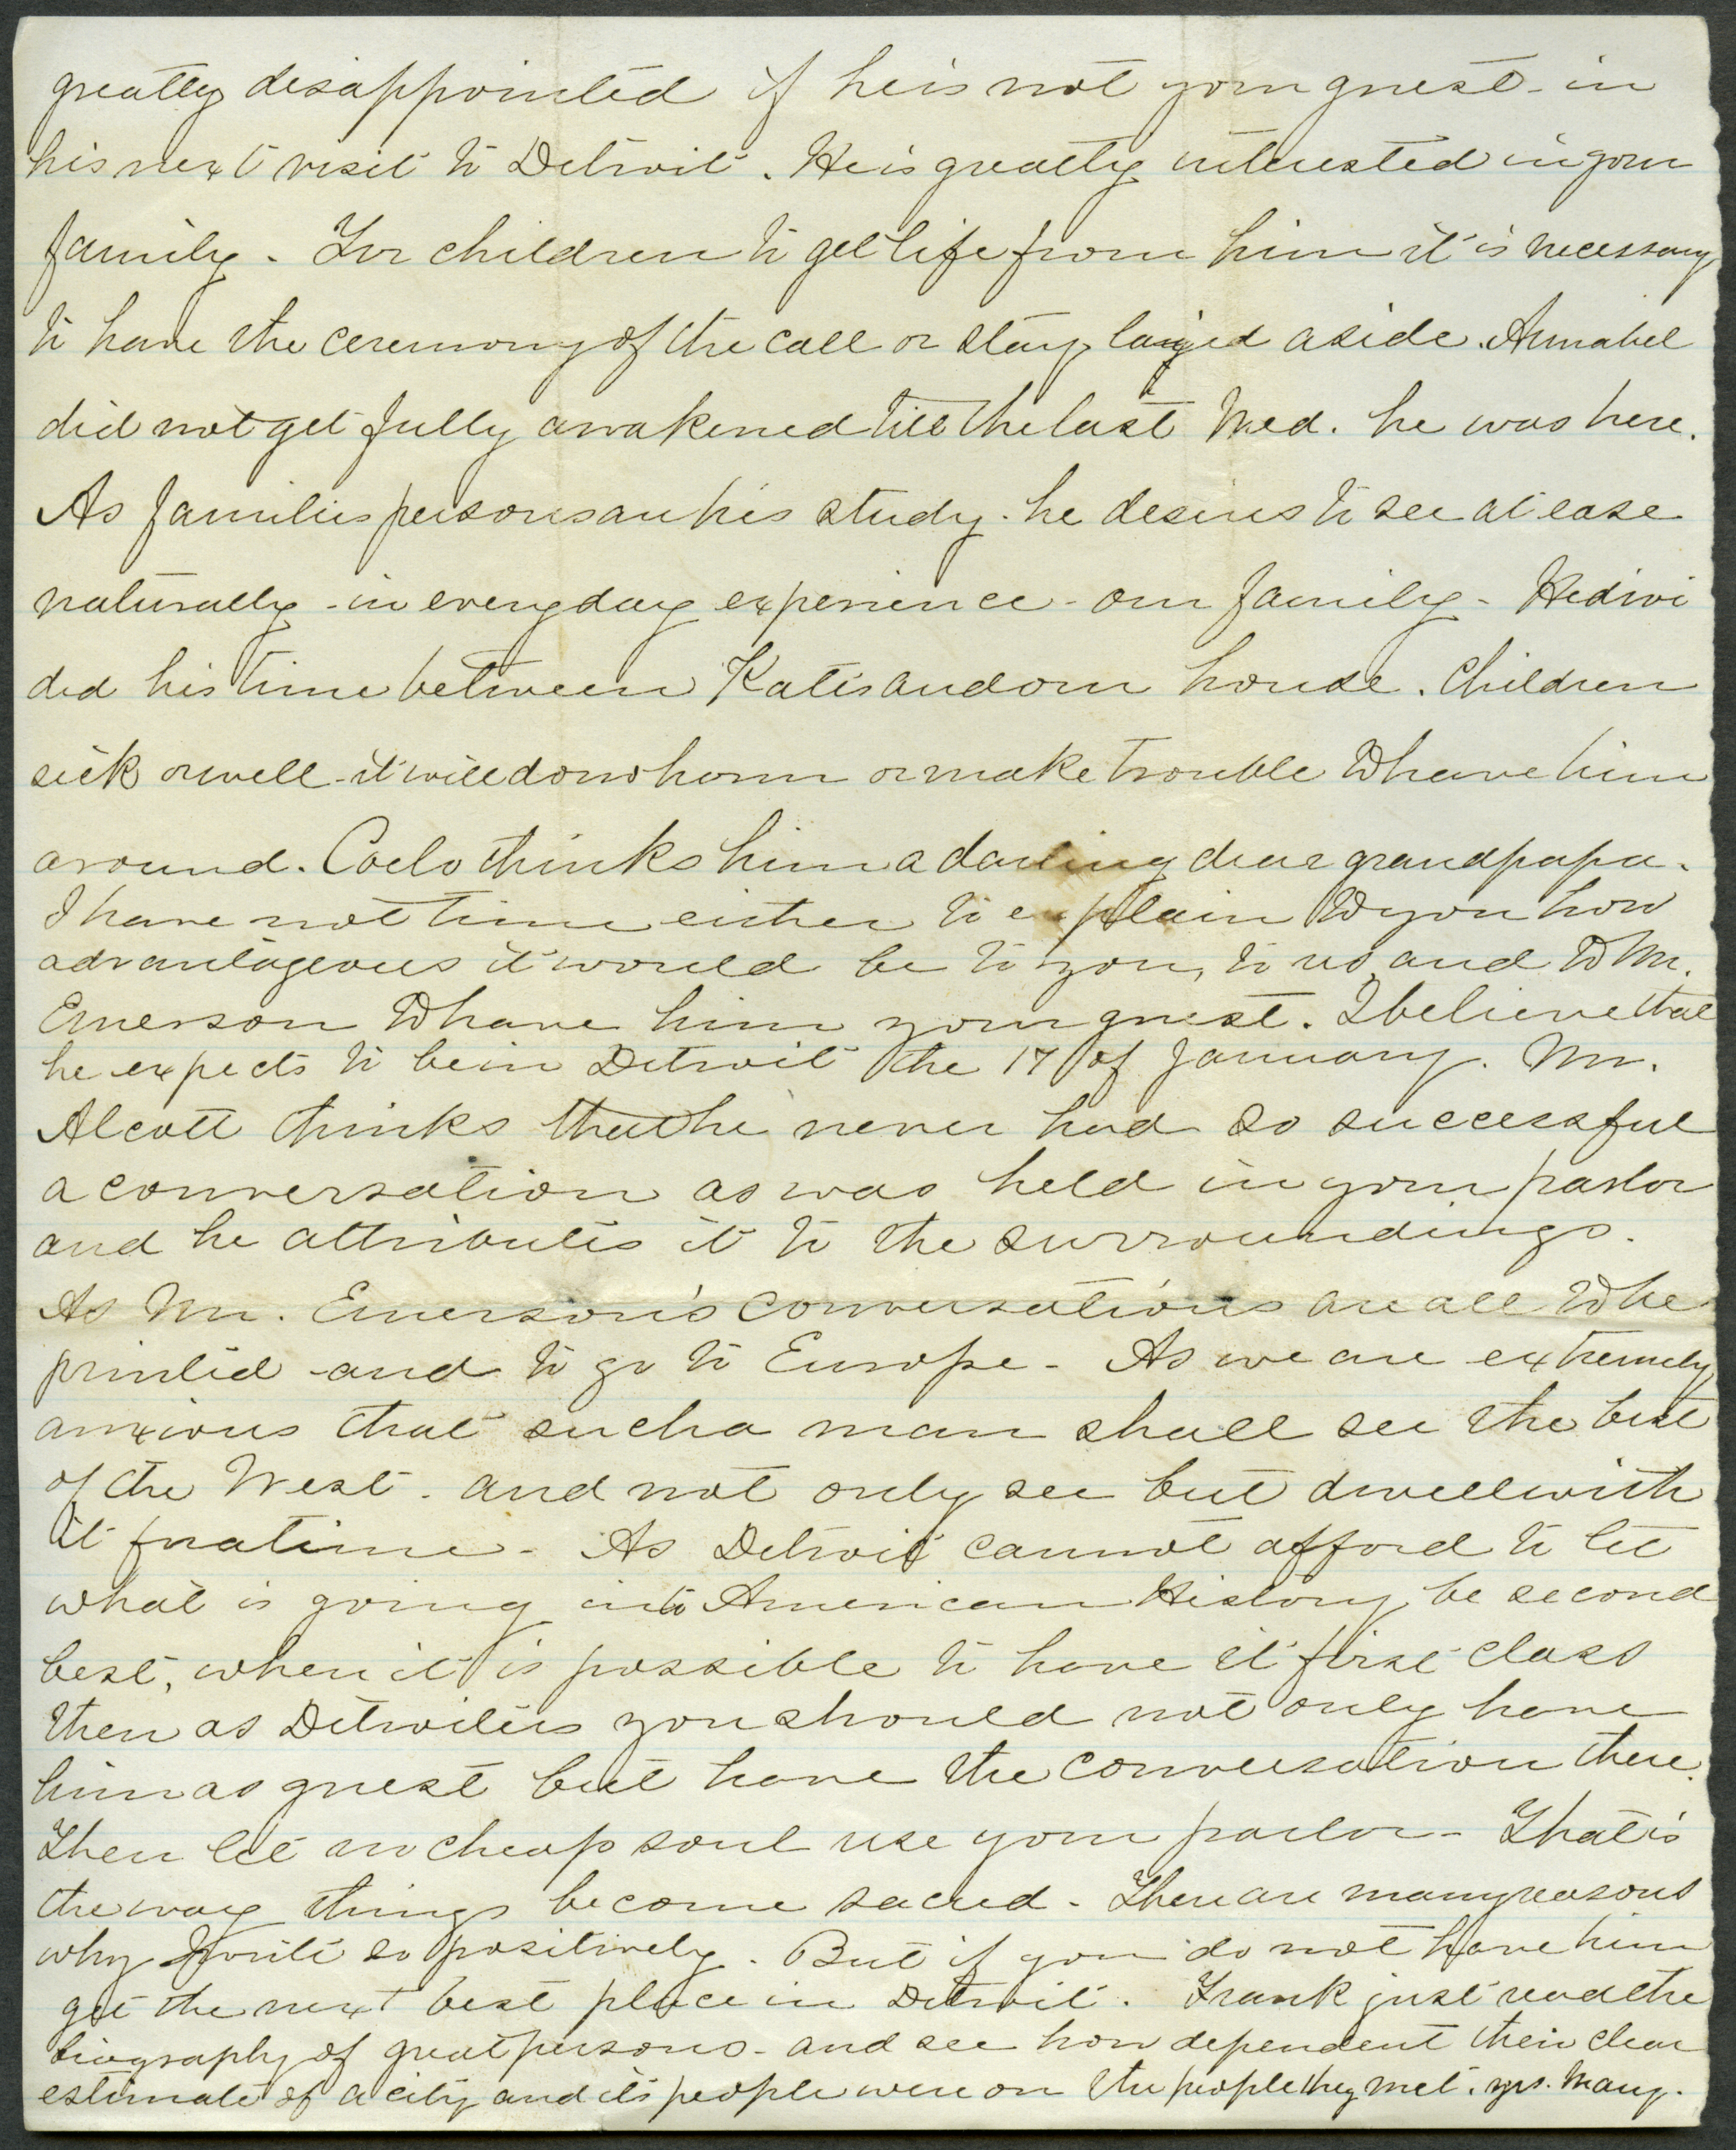 greatly disappointed if he is not your guest - in
his next visit to Detroit. He is greatly interested in your
family. For children to get life from him it is necessary
to have the ceremony of the call or stay layed aside. Annabel
did not get fully awakened till the last Wed. he was here.
As families persons are his study - he desires to see at ease
naturally - in every day experience - our family - He divi
ded his time between Katis and our house. Children
sick or well - it will do no harm or make trouble to have him
around. Coelo thinks him a darling dear grandpapa.
I have not time either to explain to you how
advantageous it would be to you, to us, and to Mr.
Emerson to have him your guest. I believe that
he expects to be in Detroit the 17 of January. Mr.
Alcott thinks that he never had so successful
a conversation as was held in your parlor
and he attributes it to the surroundings.
As Mr. Emerson's conversations are all to be
printed - and to go to Europe - As we are extremely
anxious that such a man shall see the best
of the West - and not only see but dwell with
it for a time - As Detroit cannot afford to let
what is going into American History be second
best, when it is possible to have it first class
then as Detroiters you should not only have
him as guest but have the conversation there.
Then let no cheap soul use your parlor - That is
the way things become sacred - There are many reasons
why I write so positively. But if you do not have him
get the next best place in Detroit. Frank just read the
biography of great persons - and see how dependent their clear
estimate of a city and its people were on the people they met. yrs. Mary.